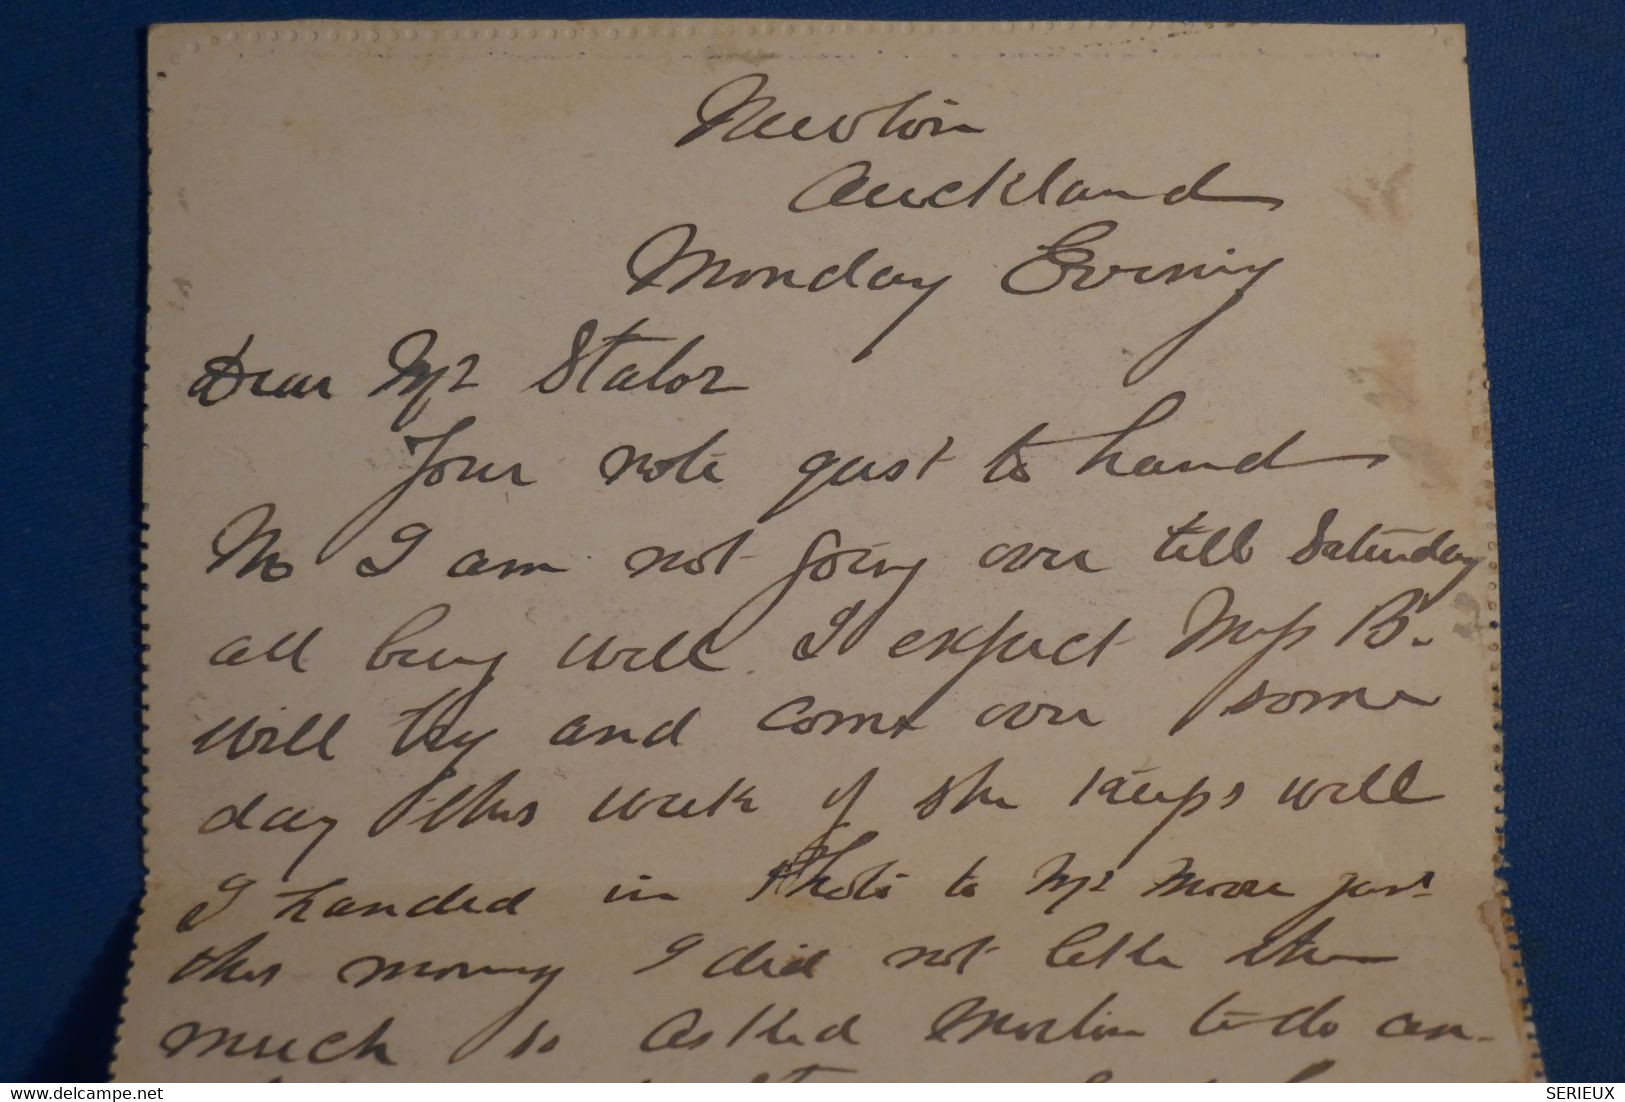 Newton
Auckland
Monday Evening
Dear Mr Stabor
Your note just to hand
No I am not going over till Saturday
all being well. I expect Miss B.
will try and come over some
day this week if she keeps well
I handed in Photo to Mr Moore just
this morning I did not like them
much so asked Morton to do an-
www.delcampe.net
SERIEUX